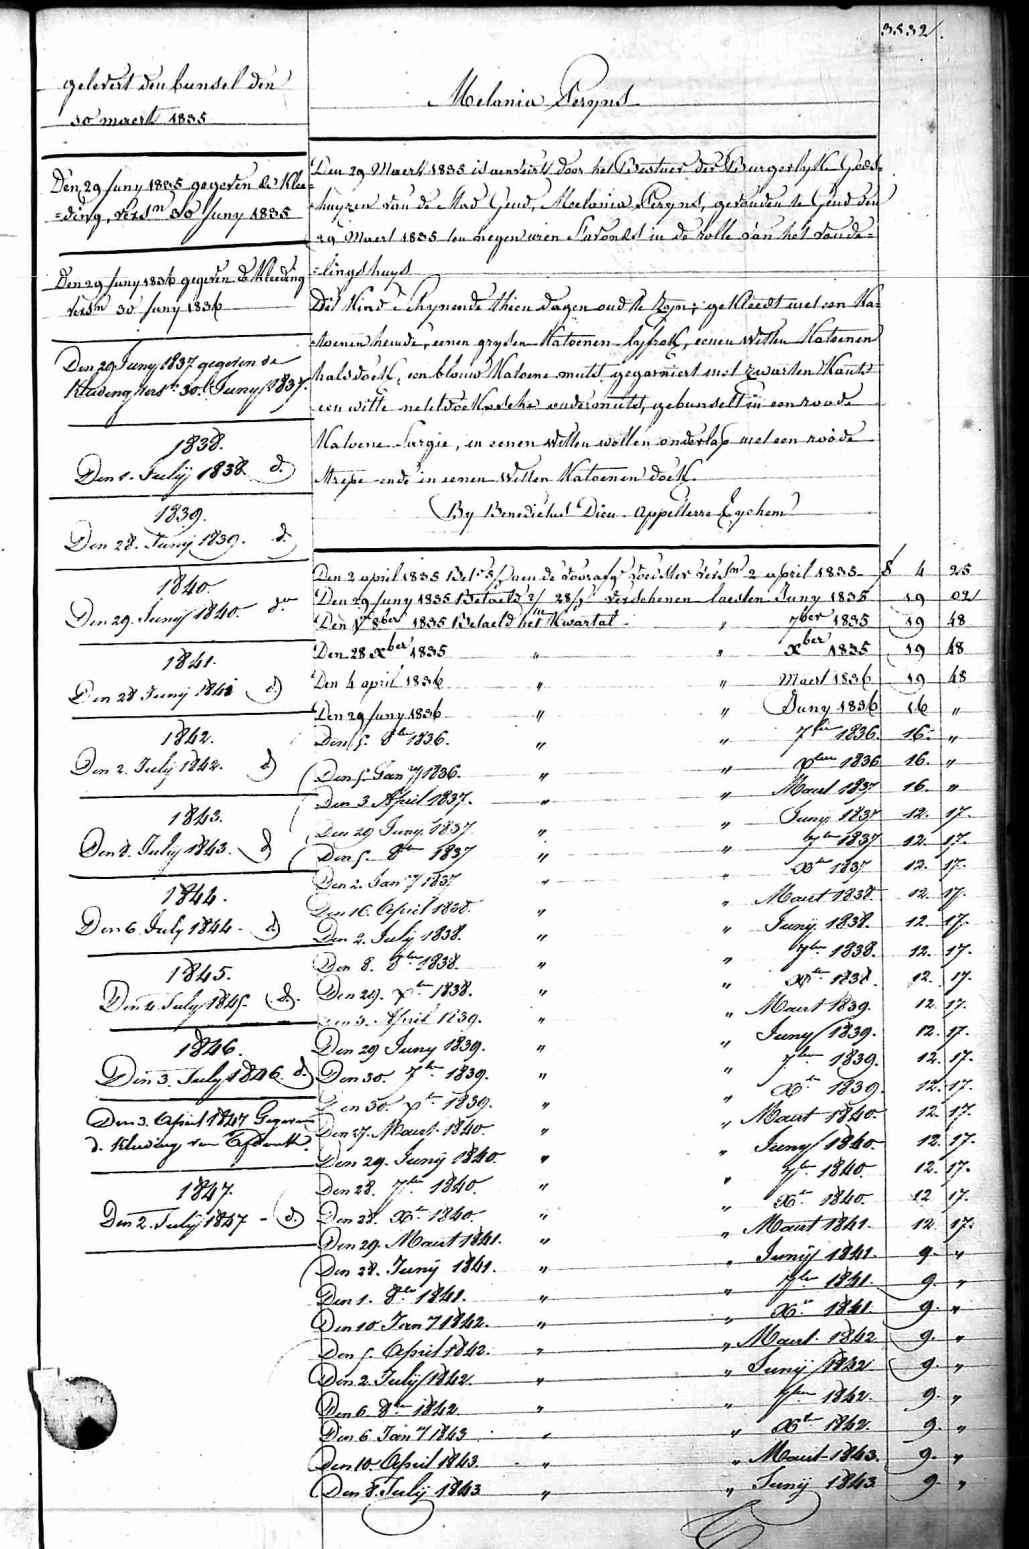 3532.
gelevert den bunsel den
30 maert 1835
Den 29 Juny 1835 gegeven de Klee=
=ding, versn 30 Juny 1835
Den 29 Juny 1836 gegeven de Kleeding
versn 30 Juny 1836
Den 29 Juny 1837 gegeven de
Kleeding vers 30 Juny 1837.
1838.
Den 1. Julij 1838 d.
1839.
Den 28. Junij 1839. d.
1840.
Den 29. Junij 1840.
1841.
Den 28 Junij 1841 d
1842.
Den 2. Julij 1842. d
1843.
Den 8. Julij 1843. d
1844.
Den 6. July 1844 d
1845.
Den 4. July 1845. d.
1846.
Den 3. July 1846. d.
Den 3. April 1847 Gegeven
d. Kleeding van
1847.
Den 2. Julij 1847 - d.
Melania Peryns
Den 29 Maert 1835 is aenveirt door het Bestuer der Burgerlyke Gods=
=huyzen van de Stad Gend, Melania Peryns, gevonden te Gend den
29 Maert 1835 ten negen uren s'avonds in de rolle van het vonde=
=lingshuys
Dit Kind schynende thien dagen oud te zyn; gekleedt met een Ka=
=toenen hemde, eenen grysen Katoenen lyfrok, eenen witten Katoenen
halsdoek, een blauw Katoene muts, gegarniert met zwarten Kant
een witte neteldoeksche ondermuts, gebunselt in een roode
Katoene Sargie, in eenen witten wollen onderlap met een roode
strepe ende in eenen witten Katoenen doek.
By Benedictus Dieu - Appelterre Eychem
Den 2 april 1835 Bet. aen de voorafg voedster versn 2 april 1835 - 4 25
Den 29 Juny 1835 Betaeld verschenen laesten Juny 1835 19 02
Den 1 8ber 1835 Betaeld het Kwartal " 7ber 1835 19 48
Den 28 Xber 1835 " " Xber 1835 19 48
Den 4 april 1836 " " Maert 1836 19 48
Den 29 Juny 1836 " " Juny 1836 16 "
Den 5. 8br 1836. " " 7ber 1836. 16. "
Den 5. Jany 1836. " " Xber 1836 16. "
Den 3. April 1837. " " Maert 1837 16. "
Den 29 Juny 1837 " " Juny 1837 12. 17.
Den 5. 8br 1837 " " 7br 1837 12. 17.
Den 2. Jany 1837 " " Xbr 1837 12. 17.
Den 16. April 1838. " " Maert 1838. 12. 17.
Den 2. July 1838. " " Junij 1838. 12. 17.
Den 8. 8br 1838. " " 7br 1838. 12. 17.
Den 29. Xbr 1838. " " Xbr 1838. 12. 17.
Den 3. April 1839. " " Maert 1839. 12. 17.
Den 29 Juny 1839. " " Juny 1839. 12. 17.
Den 30. 7br 1839. " " 7br 1839. 12. 17.
Den 30. Xbr 1839. " " Xbr 1839. 12. 17.
Den 27. Maert 1840. " " Maert 1840. 12. 17.
Den 29. Junij 1840. " " Juny 1840. 12. 17.
Den 28. 7br 1840. " " 7br 1840. 12. 17.
Den 28. Xbr 1840. " " Xbr 1840. 12 17.
Den 29. Maert 1841. " " Maert 1841. 12. 17.
Den 28. Junij 1841. " " Junij 1841. 9. "
Den 1. 8br 1841. " " 7br 1841. 9. "
Den 10. Jany 1842. " " Xbr 1841. 9. "
Den 5. April 1842. " " Maert 1842 9. "
Den 2. July 1842. " " Junij 1842 9. "
Den 6. 8br 1842. " " 7br 1842. 9. "
Den 6. Jany 1843 " " Xbr 1842. 9. "
Den 10. April 1843. " " Maert 1843. 9. "
Den 8. July 1843 " " Junij 1843 9. "